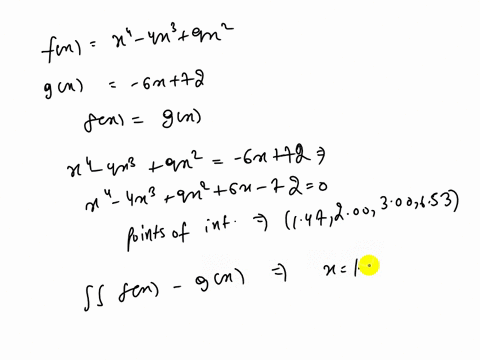 f(x) = x⁴-4x³+9x²
g(x) = -6x+72
f(x) = g(x)
x⁴-4x³ +9x² = -6x+72 ⇒
x⁴-4x³+9x²+6x-72=0
points of int. ⇒ (1.47, 2.00, 3.00, 6.53)
∬ f(x) - g(x) ⇒ x=1.